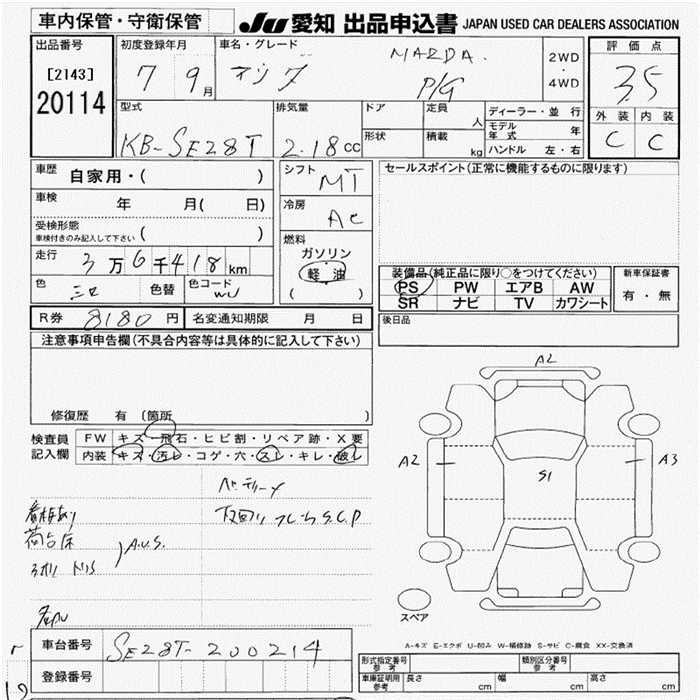 車内保管・守衛保管
JU 愛知 出品申込書 JAPAN USED CAR DEALERS ASSOCIATION
出品番号
[2143]
20114
初度登録年月
7 9月
車名・グレード
マツダ
MAZDA.
P/G
2WD
・
4WD
評価点
3.5
外装 内装
C C
型式
KB-SE28T
排気量
2.18cc
ドア
定員
人
形状
積載
kg
ディーラー・並行
モデル年式 年
ハンドル 左・右
車歴
自家用・( )
車検 年 月( 日)
受検形態
車検付きのみ記入して下さい ( )
走行 3万6千418km
色 色替 色コード
R券 8180円 名変通知期限 月 日
シフト
MT
冷房
AC
燃料
ガソリン
・
軽油
( )
セールスポイント(正常に機能するものに限ります)
装備品(純正品に限り○をつけてください)
PS PW エアB AW
SR ナビ TV カワシート
新車保証書
有・無
後日品
注意事項申告欄(不具合内容等は具体的に記入して下さい)
修復歴 有 〔箇所 〕
検査員記入欄
FW キズ・飛石・ヒビ割・リペア跡・X要
内装 キズ・汚レ・コゲ・穴・スレ・キレ・破レ
下回り フレーム S.C.P
看板あり
A.U.S.
A2
A2
S1
A3
スペア
A-キズ E-エクボ U-凹み W-補修跡 S-サビ C-腐食 XX-交換済
車台番号 SE28T-200214
登録番号
型式指定番号 参考
類別区分番号 参考
車庫証明用 参考 長さ cm 幅 cm 高さ cm